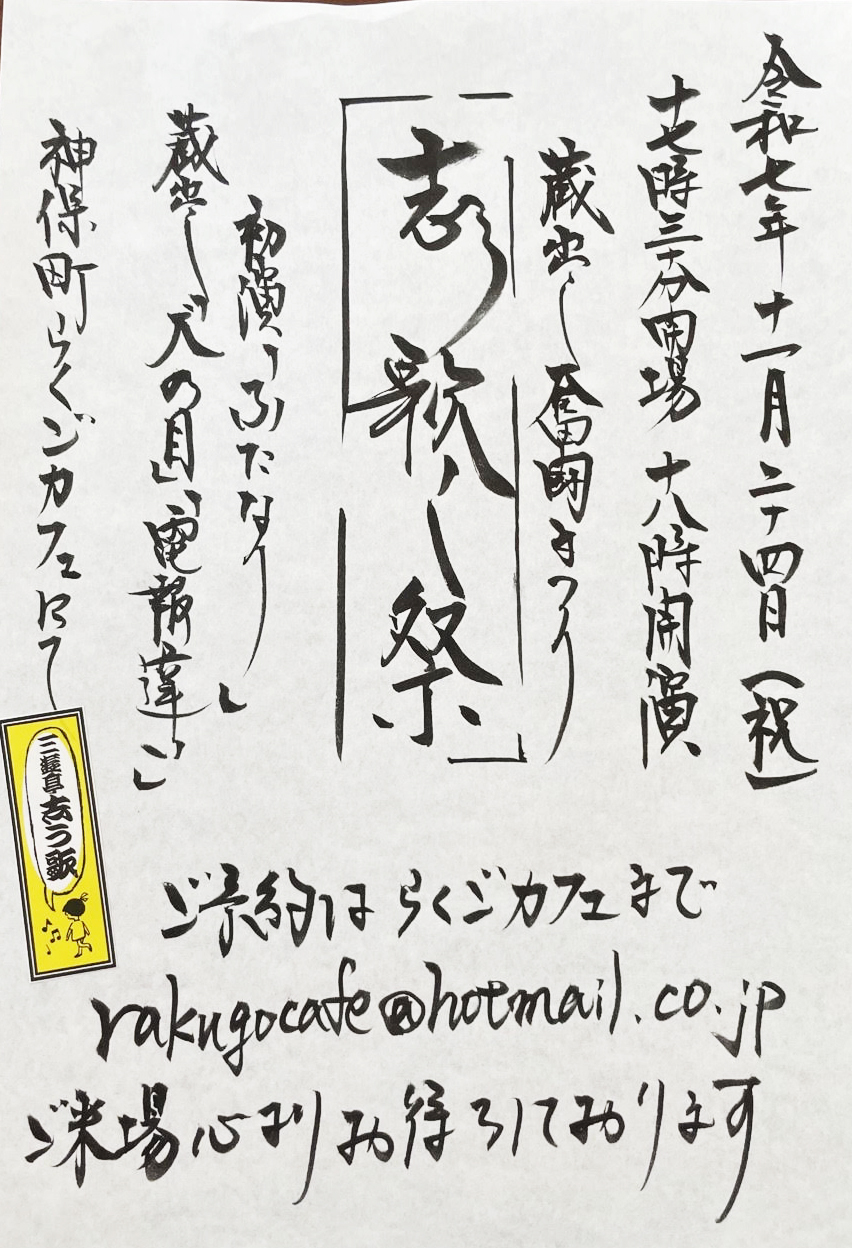 令和七年十一月二十四日(祝)
十七時三十分開場 十八時開演
蔵出し奮闘まつり
「志う歌し祭」
初演「ふたなり」
蔵出し「犬の目」「電報違い」
神保町らくごカフェにて
三遊亭志う歌
ご予約はらくごカフェまで
rakugocafe@hotmail.co.jp
ご来場心よりお待ちしております